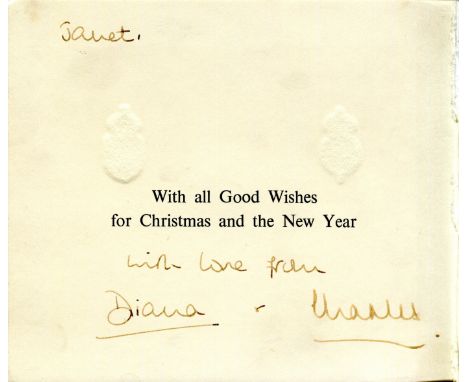 Janet.
With all Good Wishes
for Christmas and the New Year
with love from
Diana & Charles